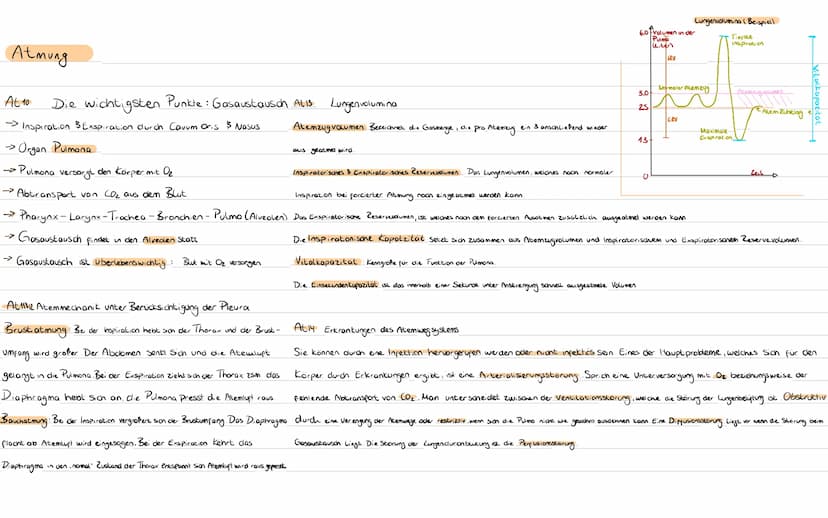 Atmung
At10 Die wichtigsten Punkte: Gasaustausch
→ Inspiration & Exspiration durch Cavum Oris & Nasus
→ Organ Pulmona
→ Pulmona versorgt den Körper mit O₂
→ Abtransport von CO₂ aus dem Blut
→ Pharynx - Larynx - Trachea - Bronchien - Pulmo (Alveolen)
→ Gasaustausch findet in den Alveolen statt
→ Gasaustausch ist überlebenswichtig: Blut mit O₂ versorgen
Atemmechanik unter Berücksichtigung der Pleura
Brustatmung: Bei der Inspiration hebt sich der Thorax und der Brust-
umfang wird größer Der Abdomen senkt sich und die Atemluft
gelangt in die Pulmona. Bei der Exspiration zieht sich der Thorax zsm das
Diaphragma hebt sich an, die Pulmona presst die Atemluft raus
Bauchatmung: Bei der Inspiration vergrößert sich der Brustumfang Das Diaphragma
flacht ab Atemluft wird eingesogen. Bei der Exspiration kehrt das
Diaphragma in den "normal" Zustand der Thorax entspannt sich Atemluft wird raus gepresst
At13 Lungenvolumina
Atemzugvolumen: Bezeichnet die Gasmenge, die pro Atemzug ein & anschließend wieder
aus geatmet wird.
Inspiratorisches & Exspiratorisches Reservevolumen: Das Lungenvolumen, welches nach normaler
Inspiration bei forcierter Atmung noch eingeatmet werden kann
Das Exspiratorische Reservevolumen, ist welches nach dem forcierten Ausatmen zusätzlich ausgeatmet werden kann
Die Inspiratorische Kapazität setzt sich zusammen aus Atemzugvolumen und Inspiratorischem und Exspiratorischem Reservevolumen.
Vitalkapazität: Kenngröße für die Funktion der Pulmona.
Die Einsekundenkapazität ist das innerhalb einer Sekunde unter Anstrengung schnell ausgeatmete Volumen
At14 Erkrankungen des Atemwegsystems
Sie können durch eine Infektion hervorgerufen werden oder nicht infektiös sein Eines der Hauptprobleme, welches sich für den
Körper durch Erkrankungen ergibt, ist eine Arterialisierungsstörung. Sprich eine Unterversorgung mit O₂ beziehungsweise der
fehlende Abtransport von CO₂. Man unterscheidet zwischen der Ventilationsstörung, welche die Störung der Lungenbelüftung ist Obstruktiv
durch eine Verengung der Atemwege oder restriktiv, wenn sich die Pulmo nicht wie gewohnt ausdehnen kann Eine Diffusionsstörung liegt vor wenn die Störung beim
Gasaustausch liegt. Die Störung der Lungendurchblutung ist die Perfusionsstörung.
Lungenvolumina (Beispiel)
6.0
Volumen in der
Pulmo
(Liter)
Tiefste
Inspiration
Normaler Atemzug
3.0
2.5
Maximale
Exspiration
1.5
0
Zeit
Vitalkapazität